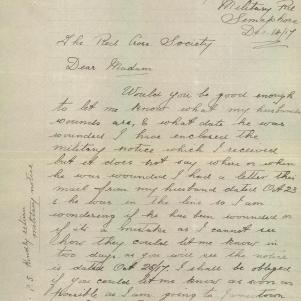 Military Rd
Semaphore
Dec 14/17
The Red Cross Society
Dear Madam
Would you be good enough
to let me know what my husbands
wounds are, & what date he was
wounded I have enclosed the
military notice which I received
but it does not say when or where
he was wounded I had a letter this
mail from my husband dated Oct 23
& he was in the line so I am
wondering if he has been wounded or
if its a mistake as I cannot see
how they could let me know in
two days as you will see the notice
is dated Oct 25/17. I shall be obliged
if you could let me know as soon as
possible as I am going to
P.S. Kindly return
military notice